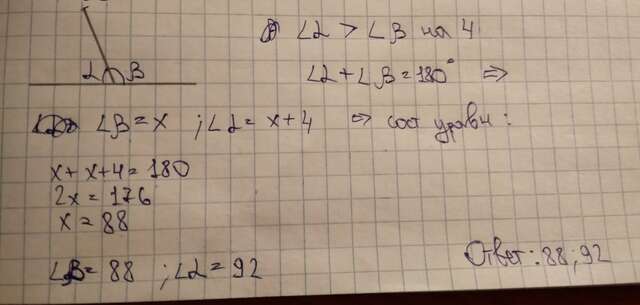 ∠α > ∠β на 4
∠α β
∠α + ∠β = 180° ⇒
∠β = x ; ∠α = x + 4 ⇒ сост уравн :
x + x + 4 = 180
2x = 176
x = 88
∠β = 88 ; ∠α = 92
Ответ: 88; 92